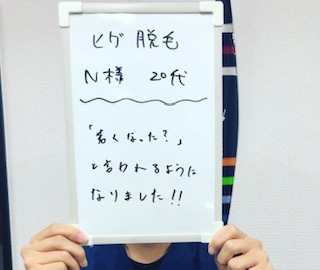 ヒゲ 脱毛
N様 20代
「若くなった?」
と言われるように
なりました!!